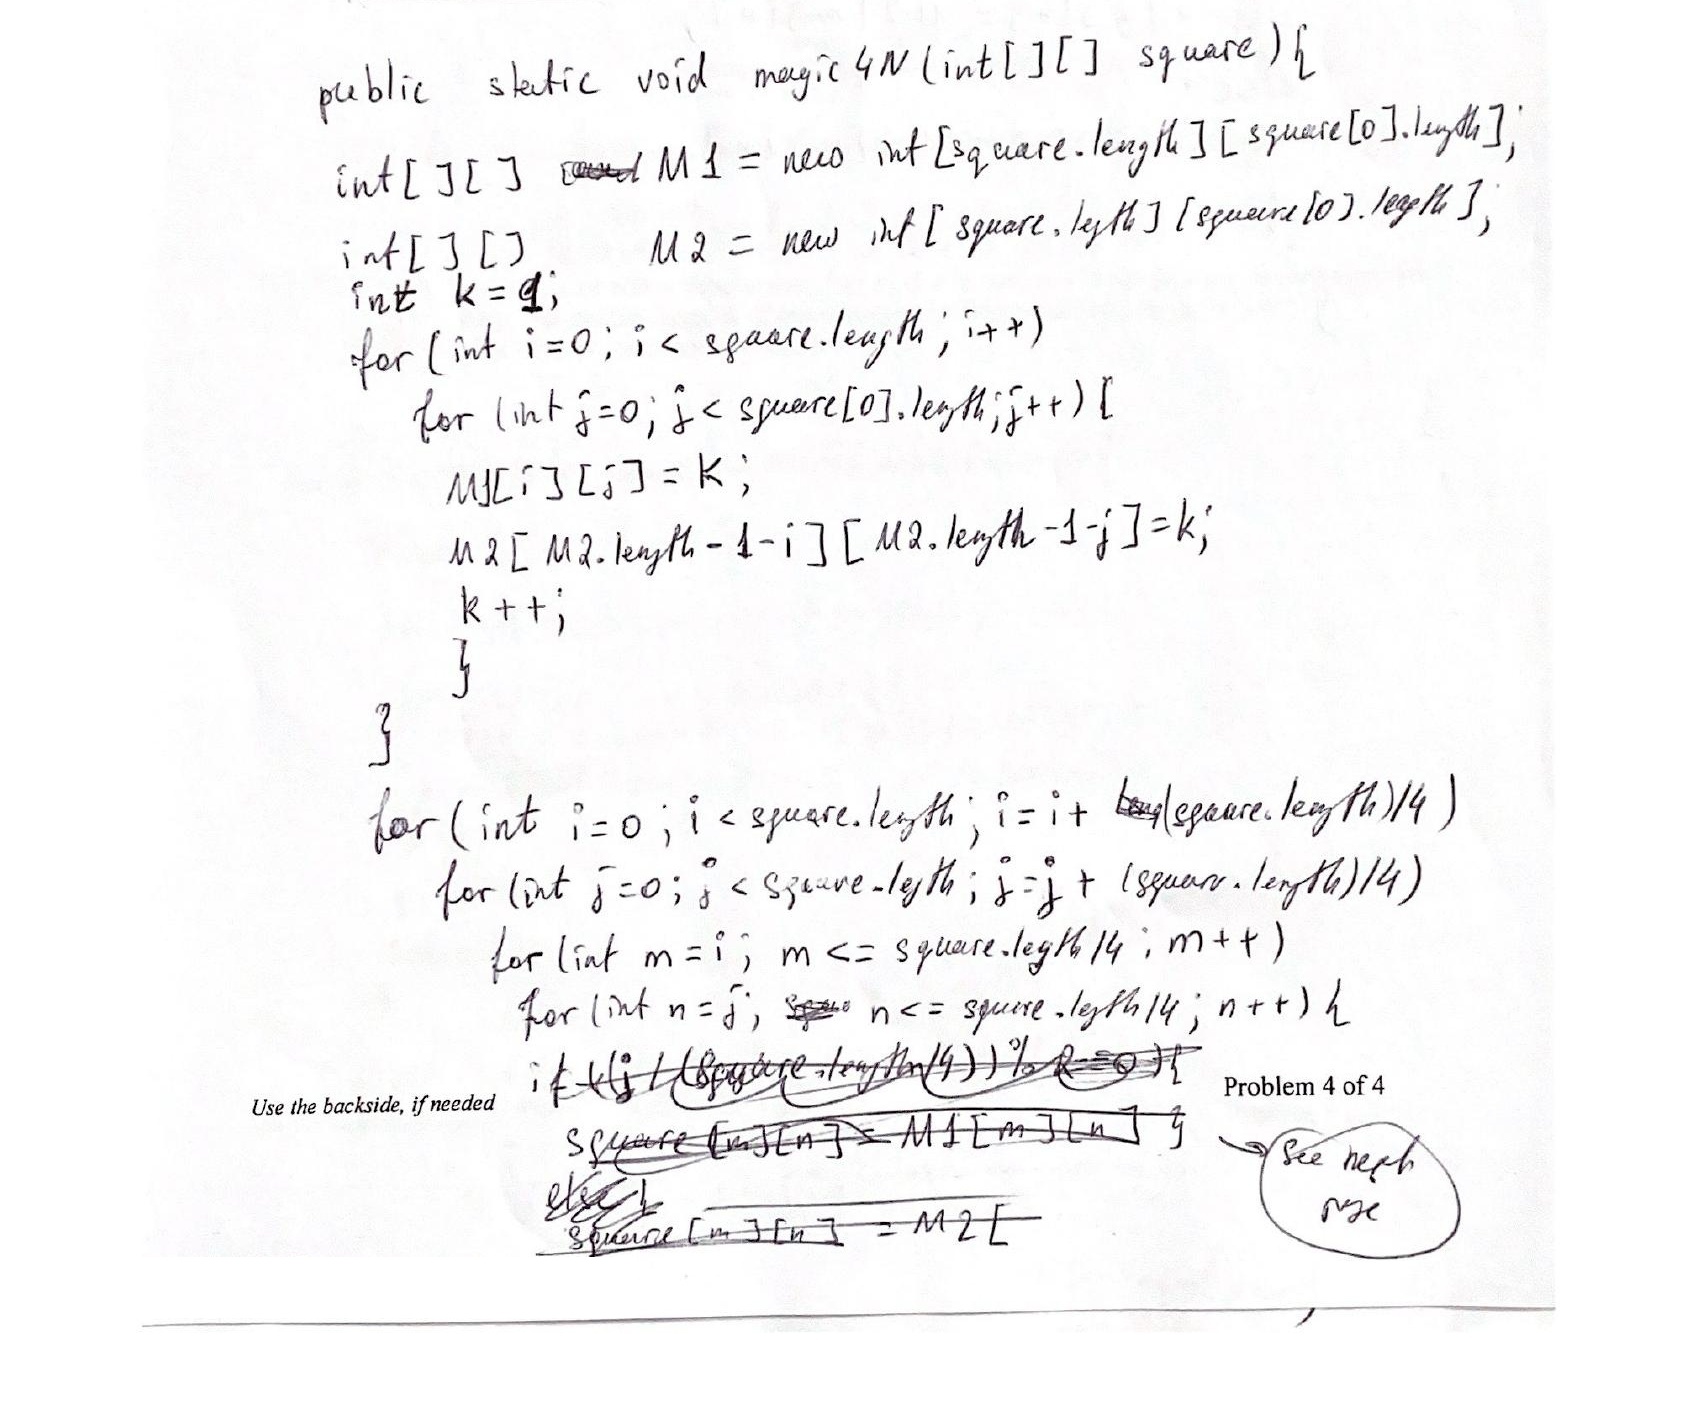 public static void magic4N(int[][] square){
int[][] M1 = new int[square.length][square[0].length];
int[][] M2 = new int[square.lgth][square[0].length];
int k=1;
for (int i=0; i < square.length; i++)
for (int j=0; j < square[0].length; j++) {
M1[i][j] = k;
M2[M2.length-1-i][M2.length-1-j]=k;
k++;
}
}
for (int i=0; i < square.length; i=i+ (square.length)/4)
for (int j=0; j < square.legth; j=j+ (square.length)/4)
for (int m=i; m <= square.legth/4; m++)
for (int n=j; n <= square.legth/4; n++) {
if ((j / (square.length/4)) % 2 == 0) {
Use the backside, if needed
Problem 4 of 4
square [m][n] = M1[m][n] }
else {
square [m][n] = M2[
See